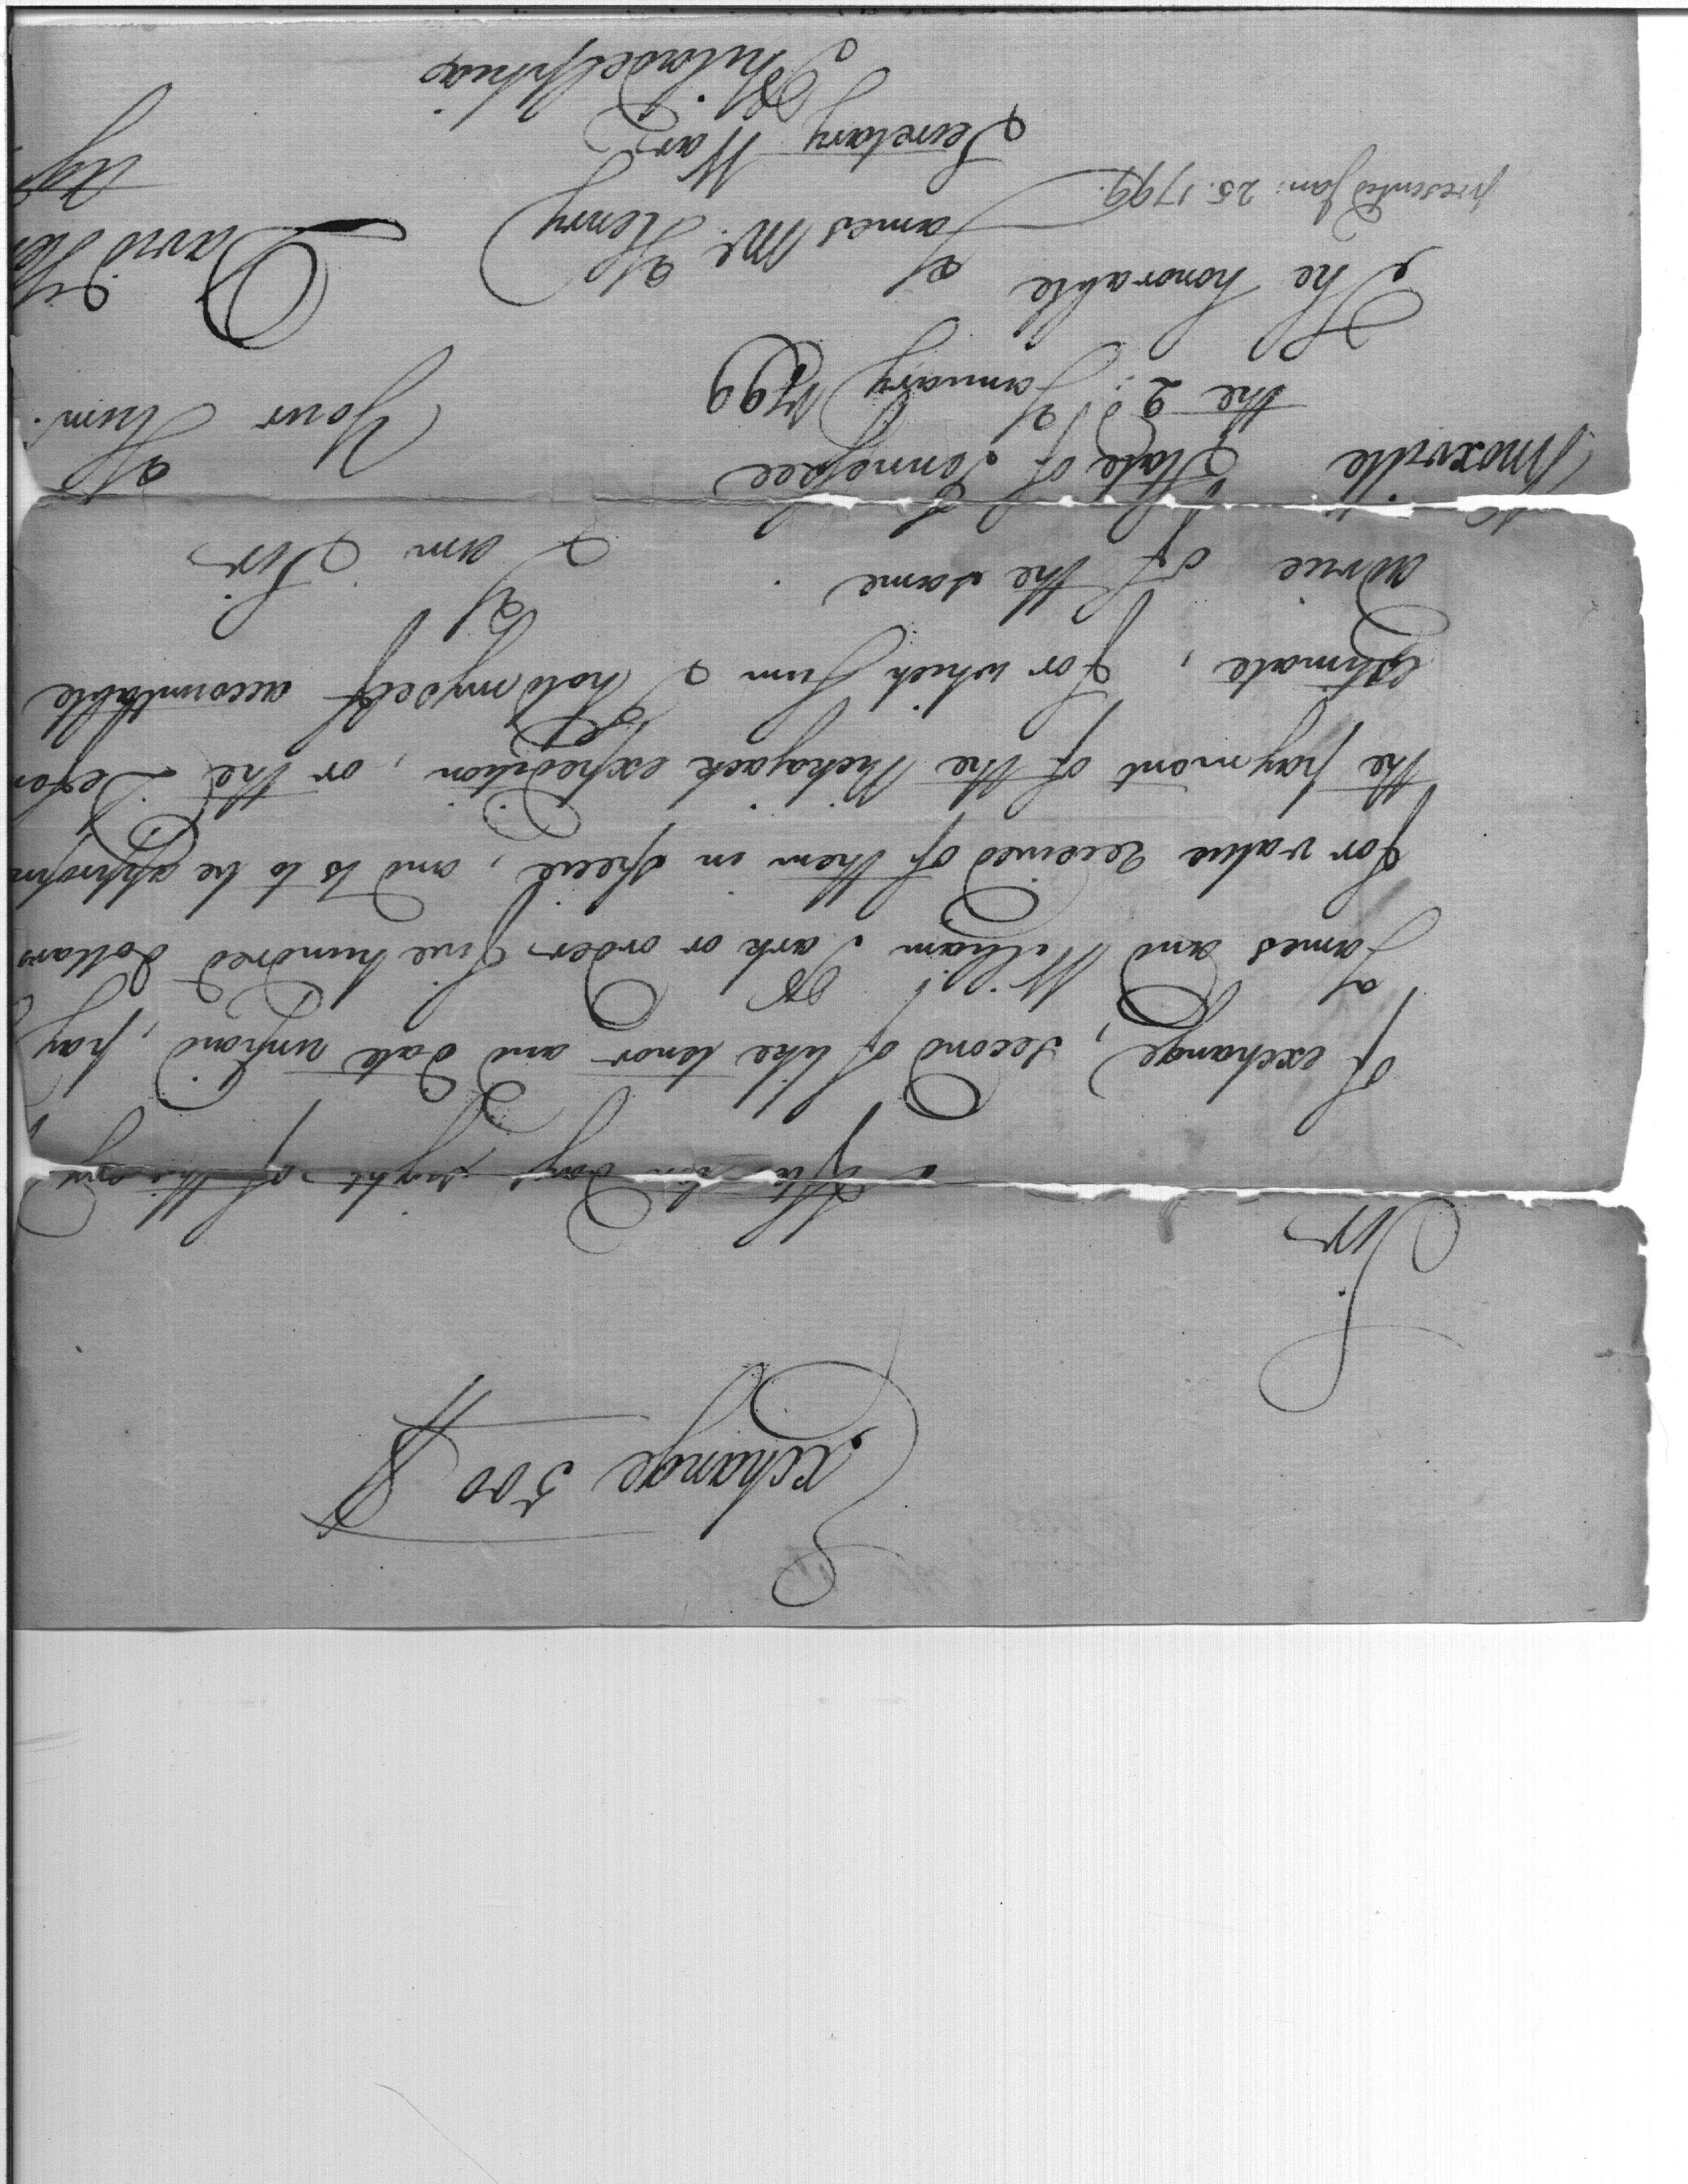 Exchange 500 $
Sir
After ten days sight of this my
of exchange, second of like tenor and date unpaid, pay
James and William Park or order five hundred dollars
for value received of them in specie, and is to be appropri
the payment of the Nickajack expedition, or the Defen
Estimate, for which sum I hold myself accountable
advice of the same.
I am Sir
Knoxville State of Tennessee
Your Hum.
the 2d. January 1799
The honorable
James Mc. Henry
David Hen
presented Jan: 25. 1799.
Secretary War
Ag
Philadelphia